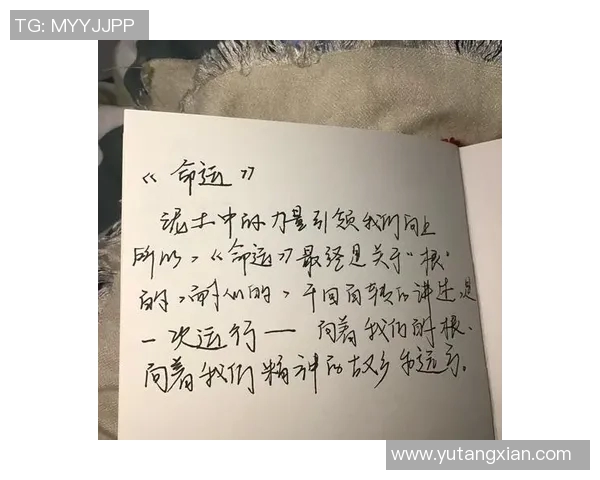 TG: MYYJJPP
《命运》
泥土中的力量引领我们向上
所以,《命运》最终是关于"根"
的,耐人的,千回百转的讲述,是
一次运行— 向着我们的根、
向着我们精神的故乡和远方。
www.yutangxian.com